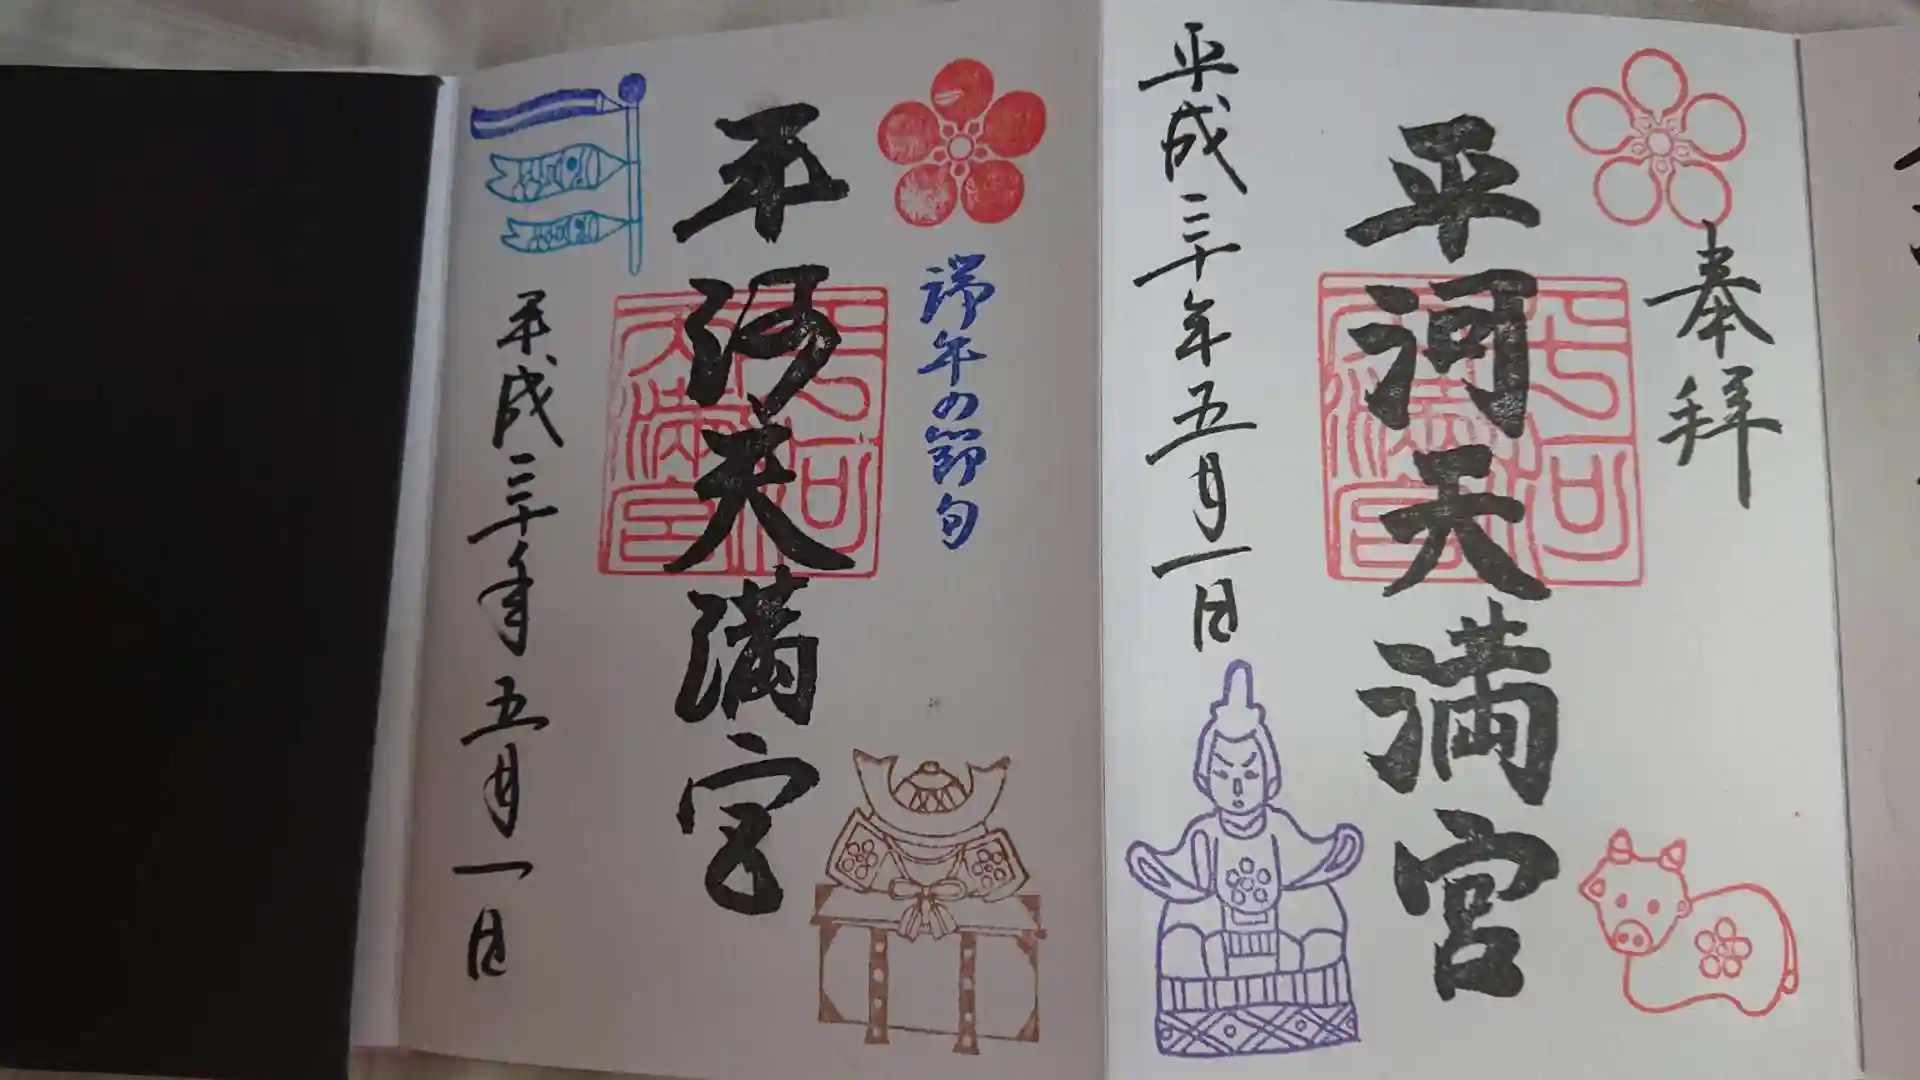 奉拝
平河天満宮
平成三十年五月一日
端午の節句
平河天満宮
平成三十年五月一日
平河天満宮
平河天満宮